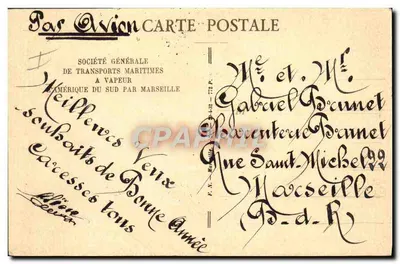 Par Avion
CARTE POSTALE
SOCIÉTÉ GÉNÉRALE
DE TRANSPORTS MARITIMES
A VAPEUR
L'AMÉRIQUE DU SUD PAR MARSEILLE
Meilleures Vœux
souhaits de Bonne Année
caresses tous
Me et Mr
Gabriel Brunet
Charcuterie Brunet
Rue Saint-Michel 22
Marseille
(B-d-R)
CPArama.com